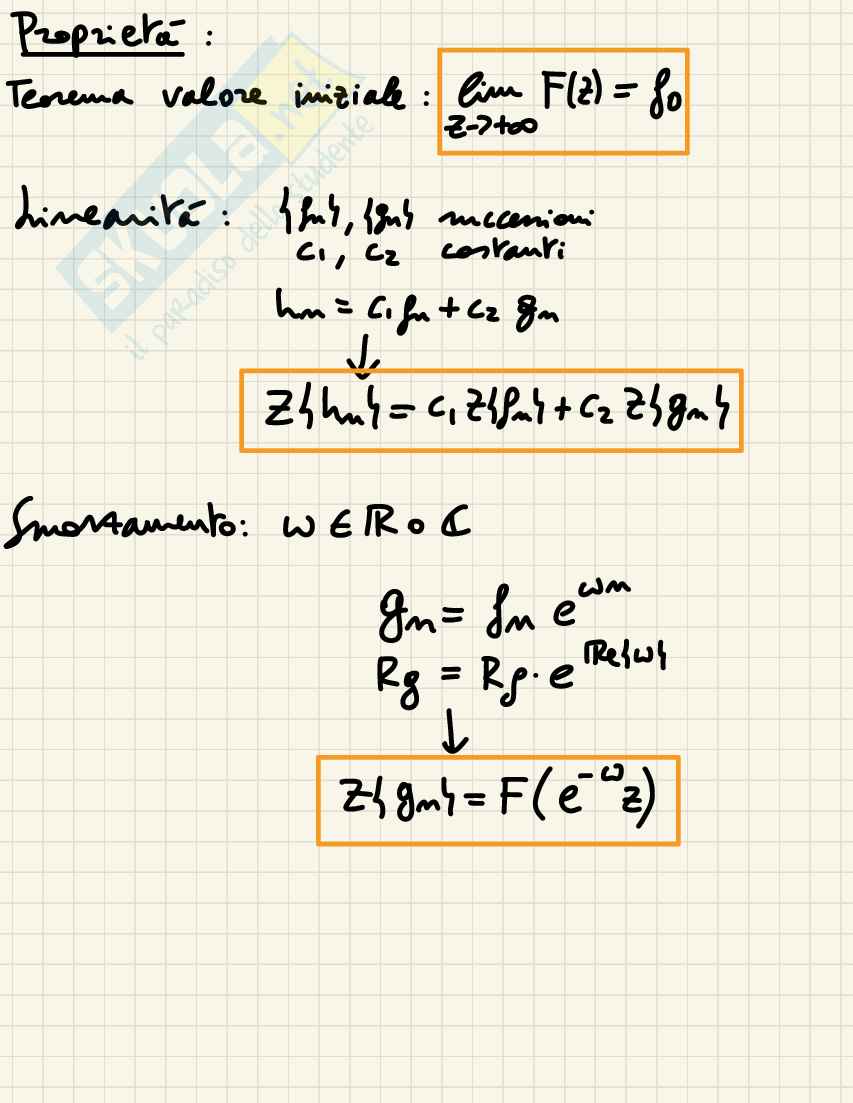 Proprietà :
Teorema valore iniziale : lim F(z) = f₀
z→+∞
Linearità : {fn}, {gn} successioni
c₁, c₂ costanti
hn = c₁ fn + c₂ gn
↓
Z{hn} = c₁ Z{fn} + c₂ Z{gn}
Smorzamento: ω ∈ ℝ o ℂ
gn = fn e^ωn
Rg = Rf · e^Re{ω}
↓
Z{gn} = F(e^-ω z)
SKUOLA.net
il paradiso dello studente